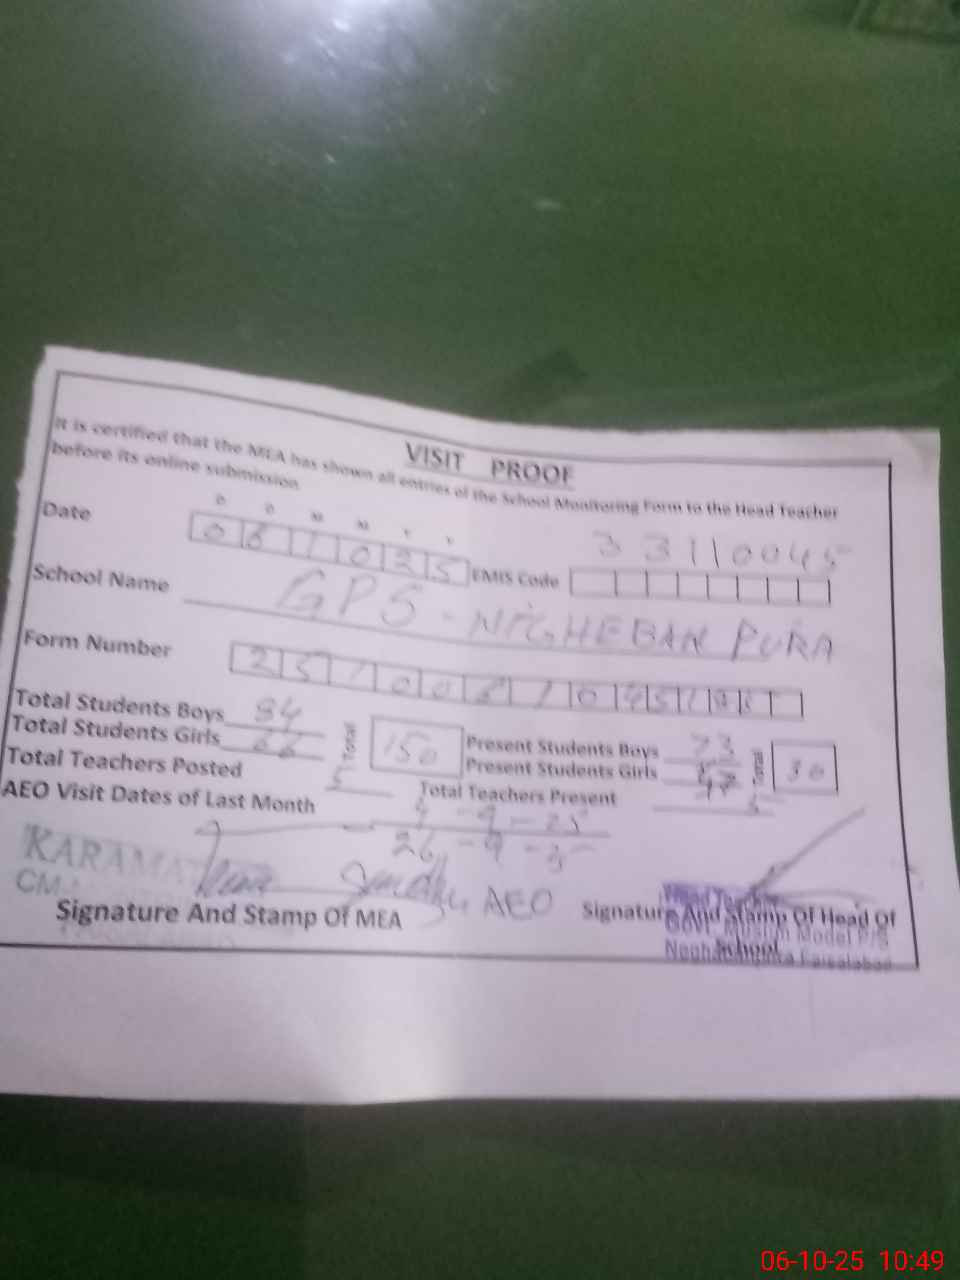 VISIT PROOF
It is certified that the MEA has shown all entries of the School Monitoring Form to the Head Teacher
before its online submission
D D M M Y Y
Date 061025 EMIS Code 33110045
School Name GPS - NIGHEBAN PURA
Form Number
Total Students Boys 84 Total 150 Present Students Boys 73 Total
Total Students Girls 66 Present Students Girls
Total Teachers Posted 5 Total Teachers Present 5
AEO Visit Dates of Last Month 4-9-25
26-9-
KARAMAT
CM
AEO
Signature And Stamp Of MEA
Signature And Stamp Of Head Of
School
Head
Govt. Muslim Model P/S
Faisalabad
06-10-25 10:49